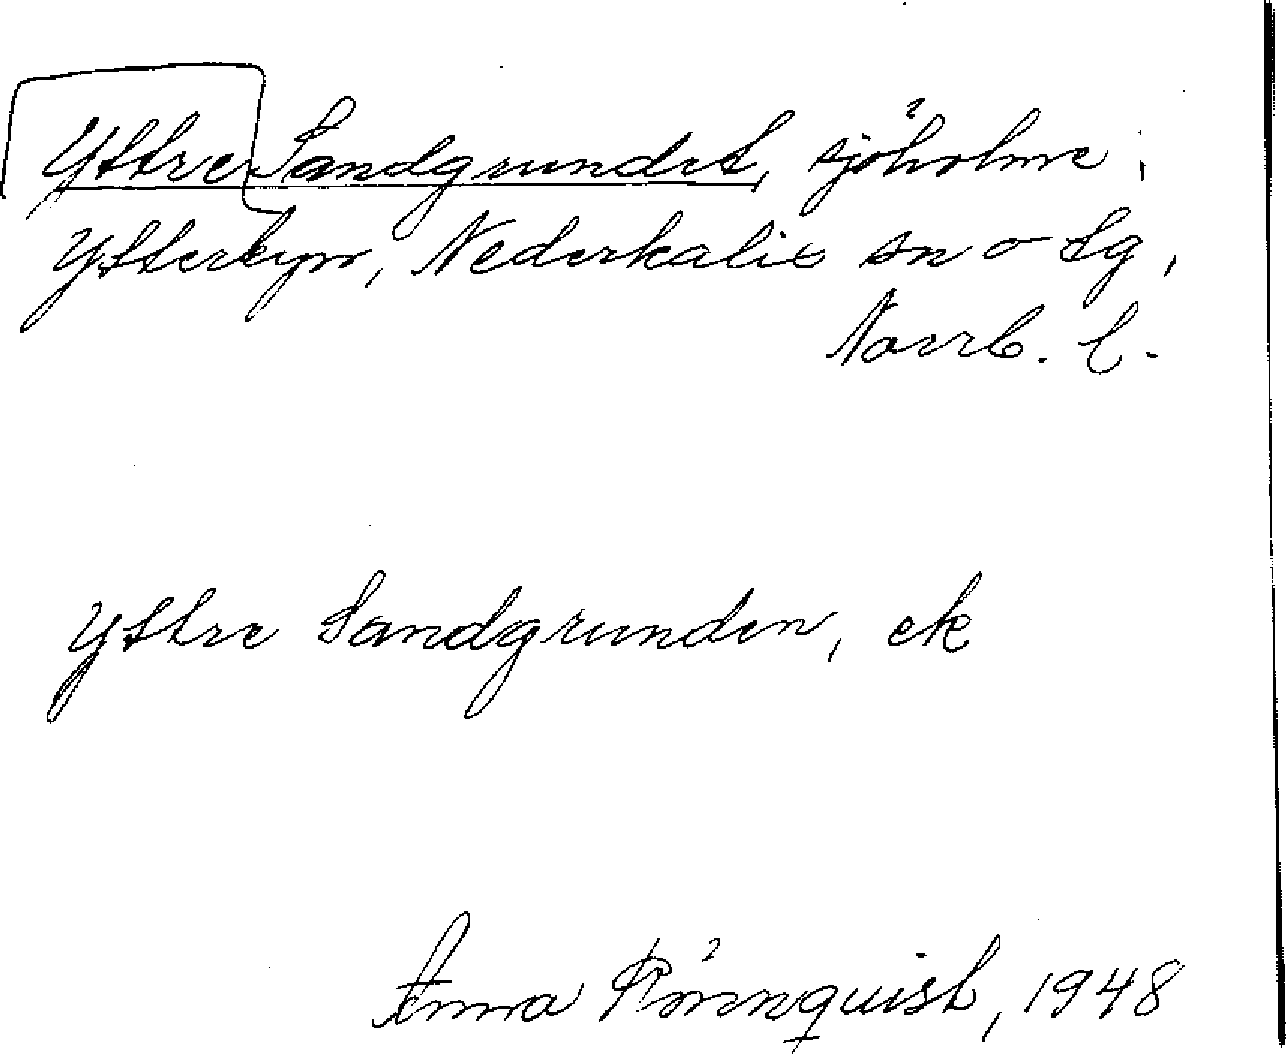 Yttre Sandgrundet, sjöholme,
Ytterbyn, Nederkalix sn o tg,
Norrb. l.
Yttre Sandgrunden, ek
Anna Rönnquist, 1948